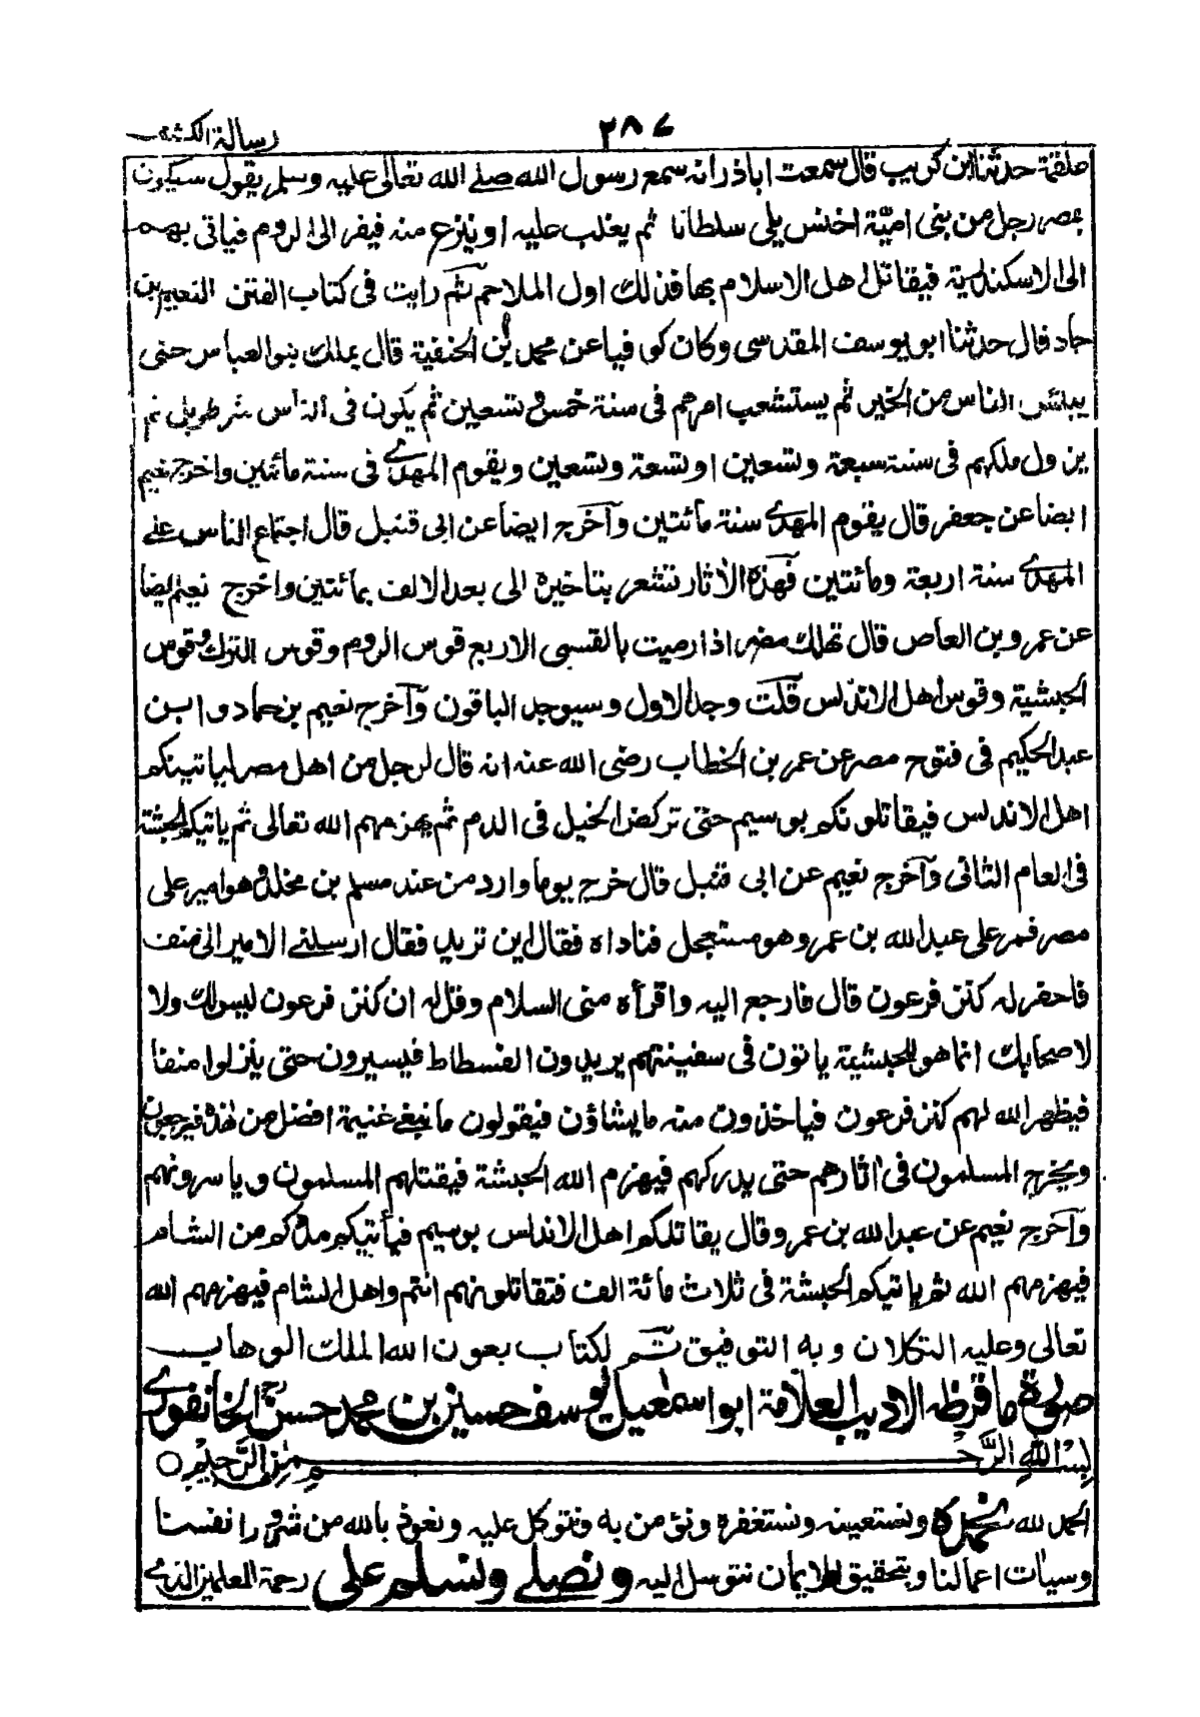 رسالة الكشف ٢٨٧
علقمة حدثنا ابن كريب قال سمعت اباذر انه سمع رسول الله صلے الله تعالى عليه وسلم يقول سيكون
بمصر رجل من بنى امیّة اخنس يلى سلطانا ثم يغلب عليه او ينزع منه فيفر الى الروم فياتى بهم
الى الاسكندرية فيقاتل اهل الاسلام بها فذلك اول الملاحم ثم رايت فى كتاب الفتن النعيم بن
حماد قال حدثنا ابويوسف المقدسى وكان كوفيا عن محمد بن الحنفية قال يملك بنو العباس حتى
الناس من الخير ثم يستشعب امرهم فى سنة خمس وتسعين ثم يكون فى الناس شر طويل ثم
يزول ملكهم فى سنة سبعة وتسعين او تسعة وتسعين ويقوم المهدے فى سنة مائتين واخرج نعيم
ايضا عن جعفر قال يقوم المهدے سنة مائتين وآخرج ايضا عن ابى قنبل قال اجتماع الناس علے
المهدے سنة اربعة ومائتين فهذه الآثار تشعر بتاخيره الى بعد الالف بمائتين واخرج نعيم ايضا
عن عمرو بن العاص قال تهلك مضر اذا رميت بالقسى الاربع قوس الروم وقوس الترك وقوس
الحبشية وقوس اهل الاندلس قلت وجد الاول وسيوجد الباقون وآخرج نعيم بن حماد وابن
عبد الحكيم فى فتوح مصر عن عمر بن الخطاب رضى الله عنه انه قال لرجل من اهل مصر لياتينكم
اهل الاندلس فيقاتلونكم بوسيم حتى تركض الخيل فى الدم ثم يهزمهم الله تعالى ثم ياتيكم الحبشة
فى العام الثانى وآخرج نعيم عن ابى قنبل قال خرج يوما وارد من عند مسلم بن مخلد وهو امير على
مصر فمر على عبد الله بن عمرو وهو مستعجل فناداه فقال اين تريد فقال ارسلنے الامير الى منف
فاحفر له كنز فرعون قال فارجع اليه واقرأه منى السلام وقل له ان كنز فرعون ليس لك ولا
لاصحابك انما هو للحبشية ياتون فى سفينتهم يريدون الفسطاط فيسيرون حتى ينزلوا منفا
فيظهر الله لهم كنز فرعون فياخذون منه ما يشاؤن فيقولون ما نبغے غنيمة افضل من هذه فيرجعون
ويخرج المسلمون فى اثارهم حتى يدركهم فيهزم الله الحبشة فيقتلهم المسلمون وياسرونهم
وآخرج نعيم عن عبد الله بن عمرو قال يقاتلكم اهل الاندلس بوسيم فيأتيكم مددكم من الشام
فيهزمهم الله ثم ياتيكم الحبشة فى ثلاث مائة الف فتقاتلونهم انتم واهل الشام فيهزمهم الله
تعالى وعليه التكلان وبه التوفيق تم لكتاب بعون الله الملك الوهاب
صورة ما قرظه الاديب العلامة ابو اسمٰعيل يوسف حسين بن محمد حسن الخانفورے
بِسْمِ اللهِ الرَّحْمٰنِ الرَّحِيْمِ ○
الحمد لله نحمده ونستعينه ونستغفره ونؤمن به ونتوكل عليه ونعوذ بالله من شرور انفسنا
وسيأت اعمالنا وبتحقيق الايمان نتوسل اليه ونصلے ونسلم على رحمة للعلمين الذے